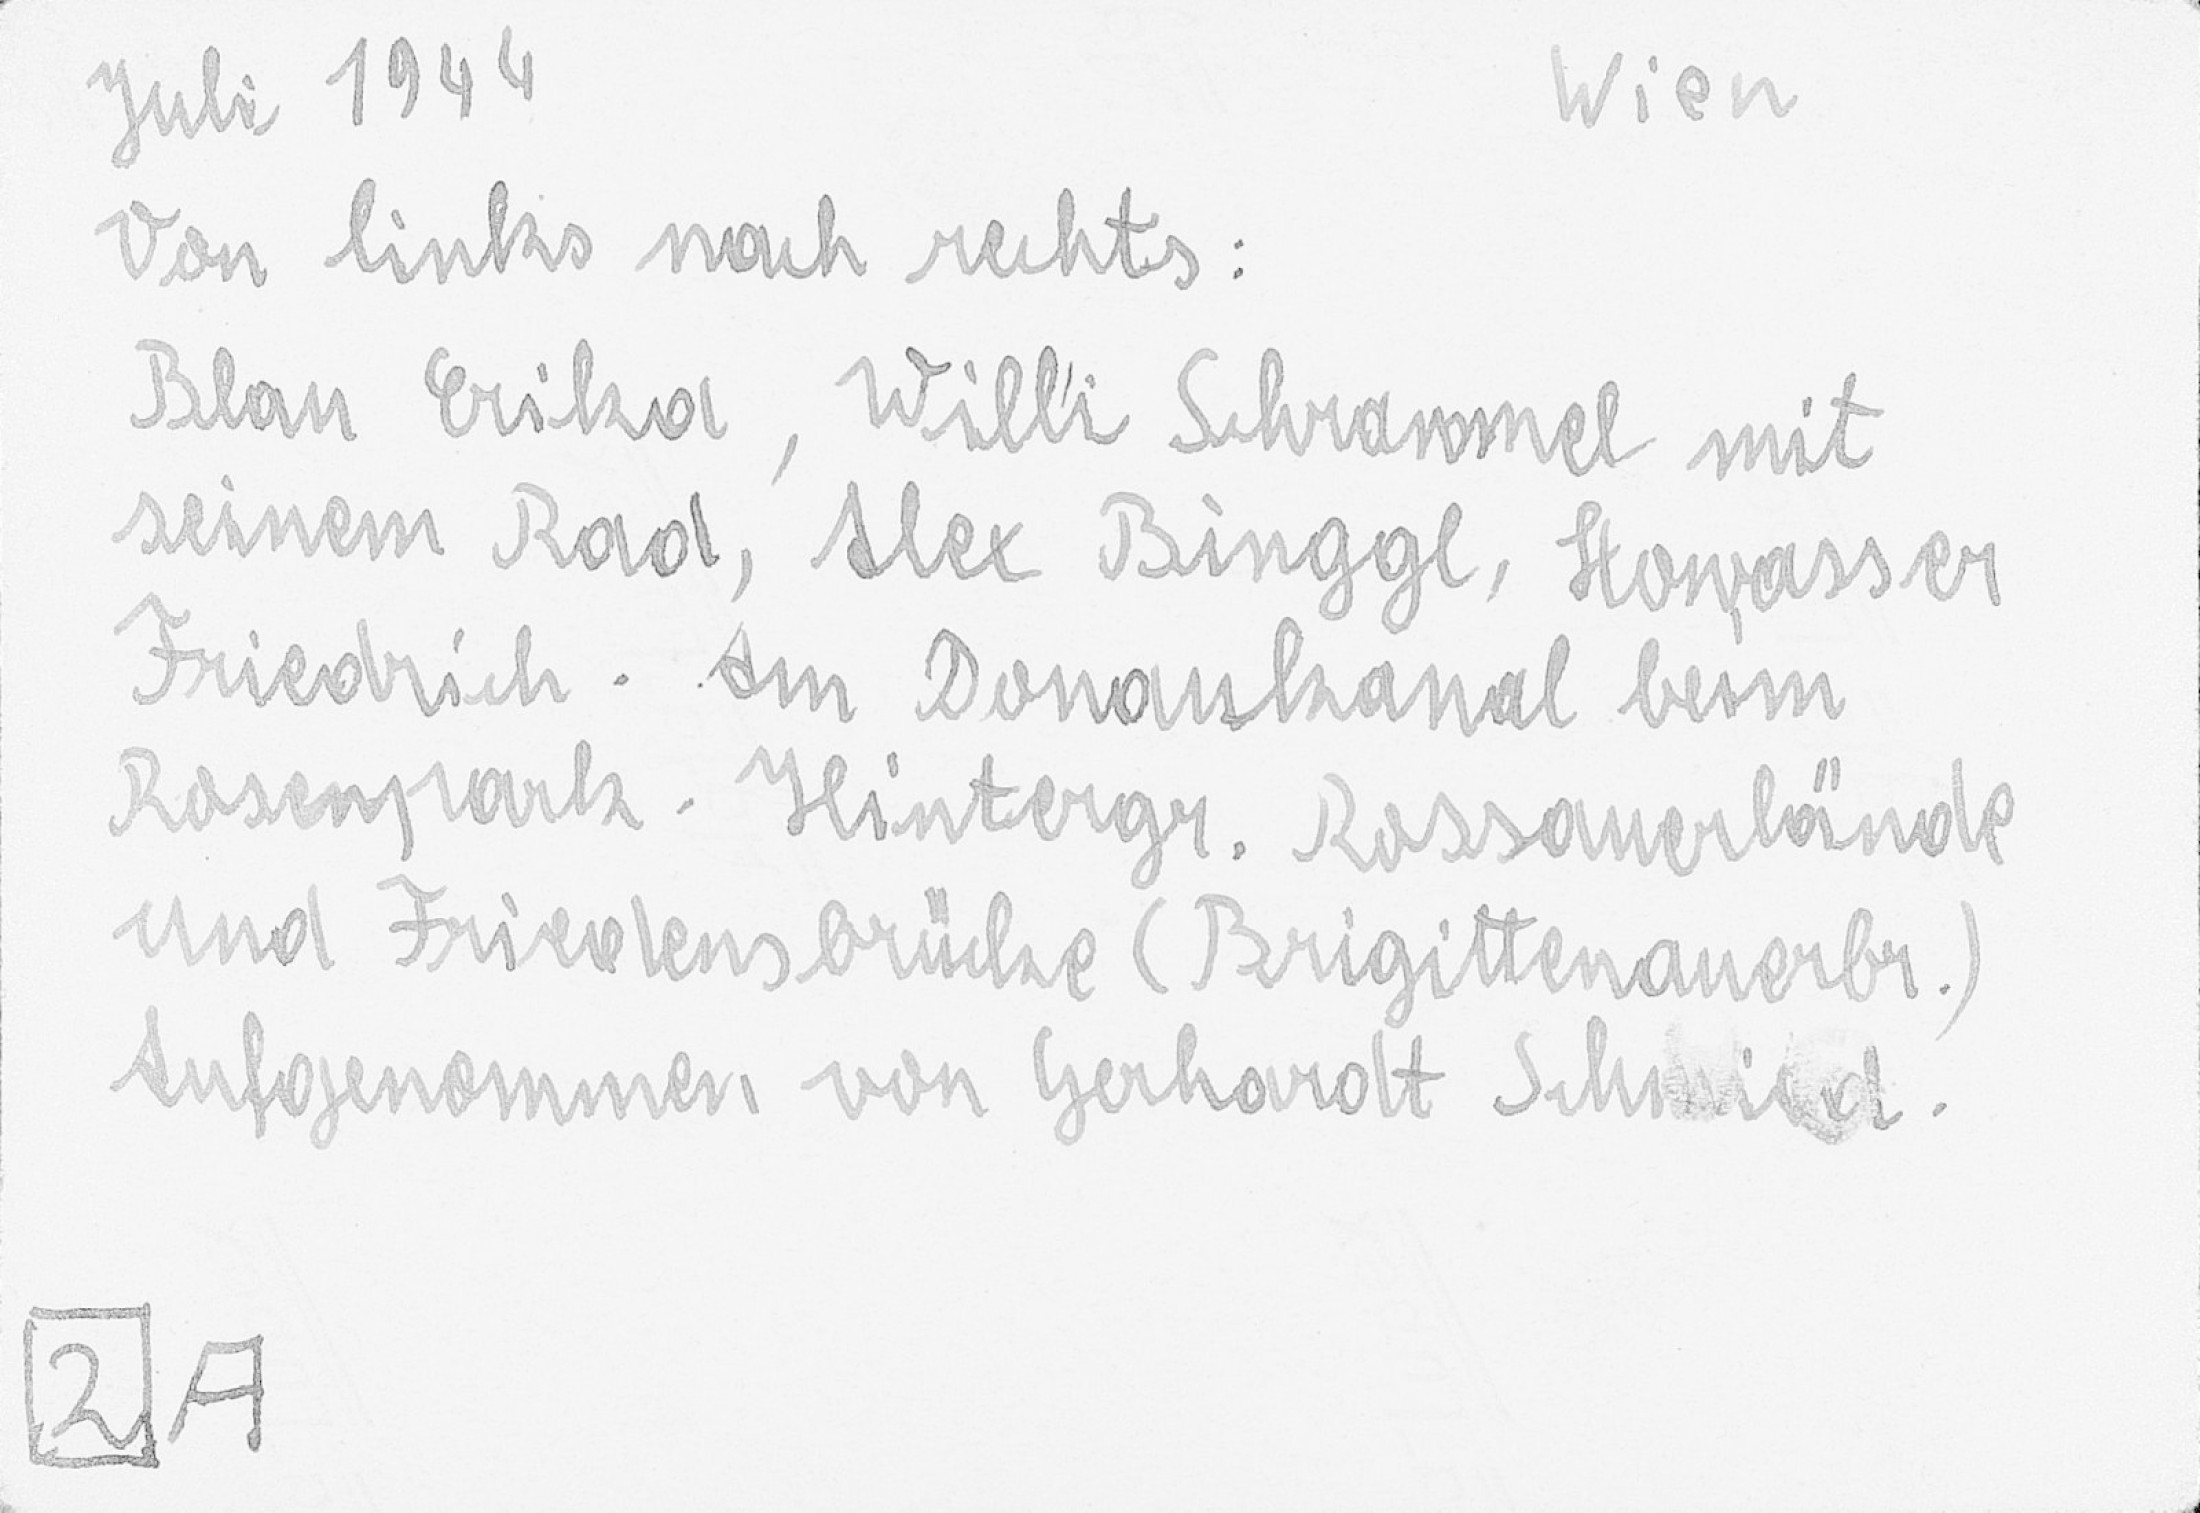 Juli 1944 Wien
Von links nach rechts:
Blau Erika, Willi Schrammel mit
seinem Rad, Alex Binggl, Howasser
Friedrich. Am Donaukanal beim
Rosenpark. Hintergr. Rossauerlände
und Friedensbrücke (Brigittenauerbr.)
Aufgenommen von Gerhardt Schmied.
2 A